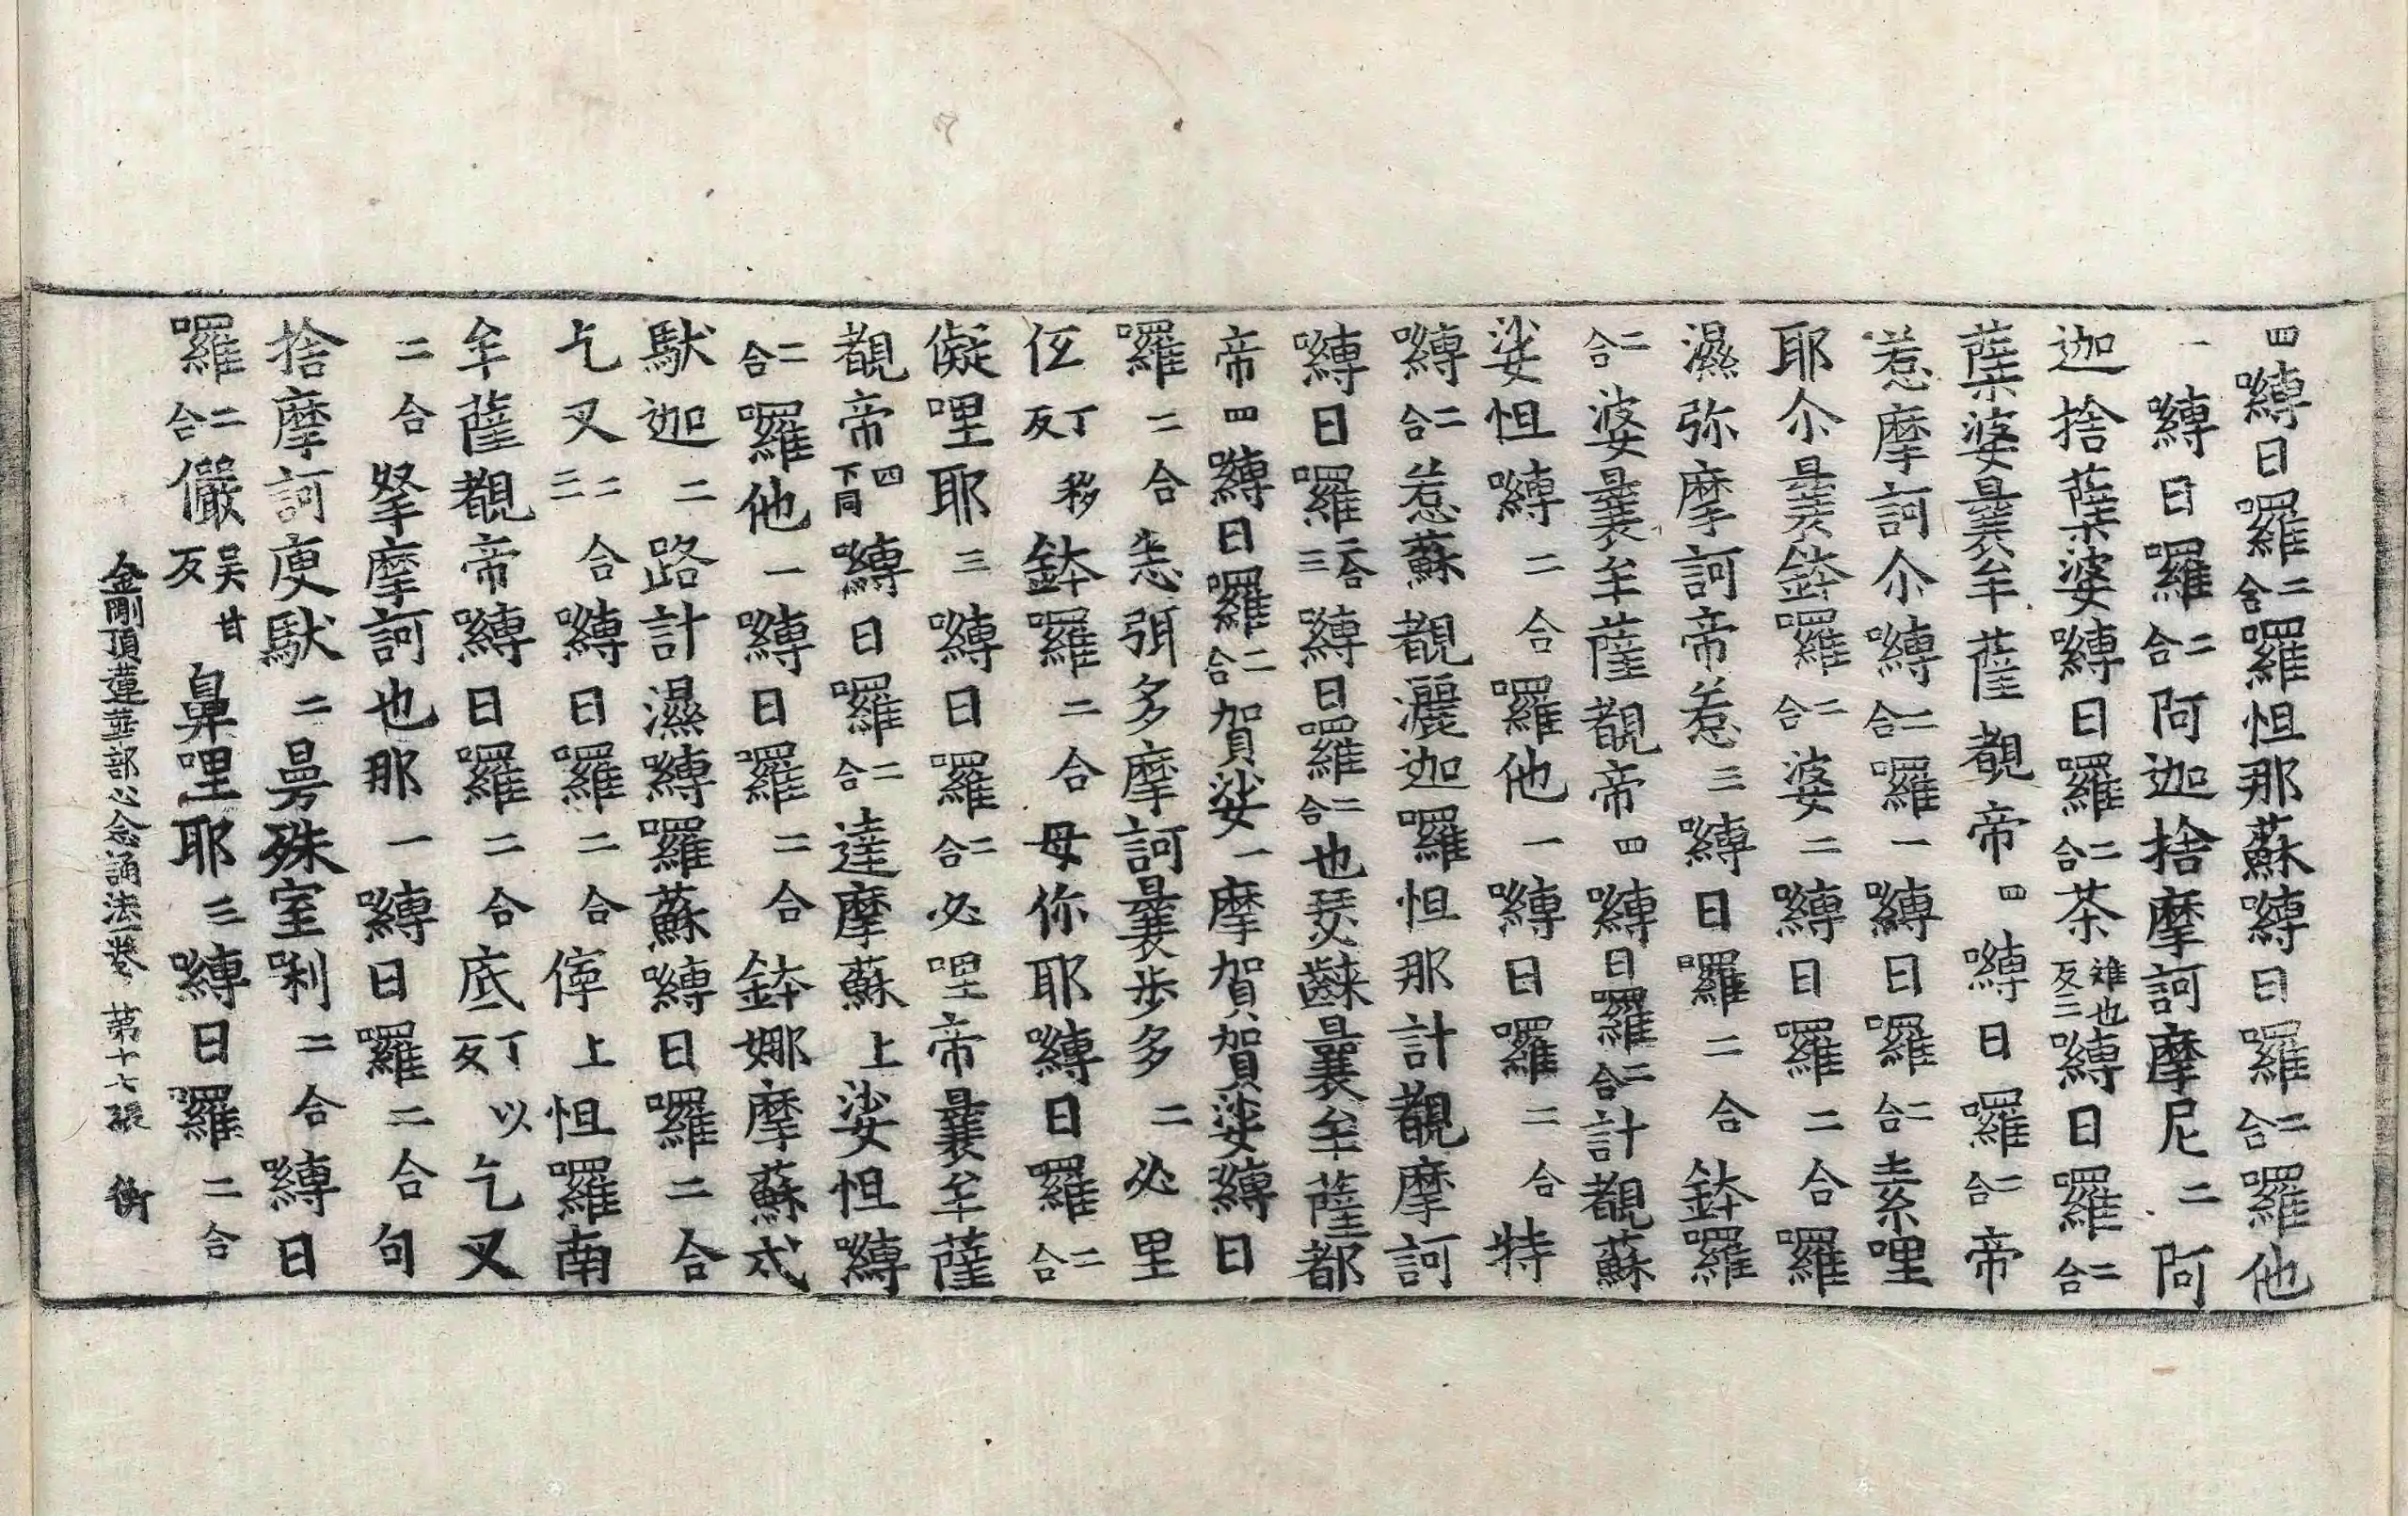 四嚩日囉二合囉怛那蘇嚩日囉二合囉他
一嚩日囉二合阿迦捨摩訶摩尼二阿
迦捨蘖婆嚩日囉二合茶雉也反三嚩日囉二合
蘖婆曩牟薩覩帝四嚩日囉二合帝
惹摩訶尒嚩二合囉一嚩日囉二合素哩
耶尒曩鉢囉二合婆二嚩日囉二合囉
濕弥摩訶帝惹三嚩日囉二合鉢囉
二合婆曩牟薩覩帝四嚩日囉二合計覩蘇
娑怛嚩二合囉他一嚩日囉二合特
嚩二合惹蘇覩灑迦囉怛那計覩摩訶
嚩日囉二合三嚩日囉二合也瑟曩牟薩都
帝四嚩日囉二合賀娑一摩賀賀娑嚩日
囉二合悉弭多摩訶曩步多二必里
丁移反鉢囉二合母你耶嚩日囉二合
儗哩耶三嚩日囉二合必哩帝曩牟薩
覩帝四下同嚩日囉二合達摩蘇上娑怛嚩
二合囉他一嚩日囉二合鉢娜摩蘇戍
馱迦二路計濕嚩囉蘇嚩日囉二合
乞叉二合三嚩日囉二合停上怛囉南
牟薩覩帝嚩日囉二合底丁以反乞叉
二合拏摩訶也那一嚩日囉二合句
捨摩訶庾馱二曼殊室唎二合嚩日
囉二合儼吴甘反鼻哩耶三嚩日囉二合
金剛頂蓮華部心念誦法一卷 第十七張 衡